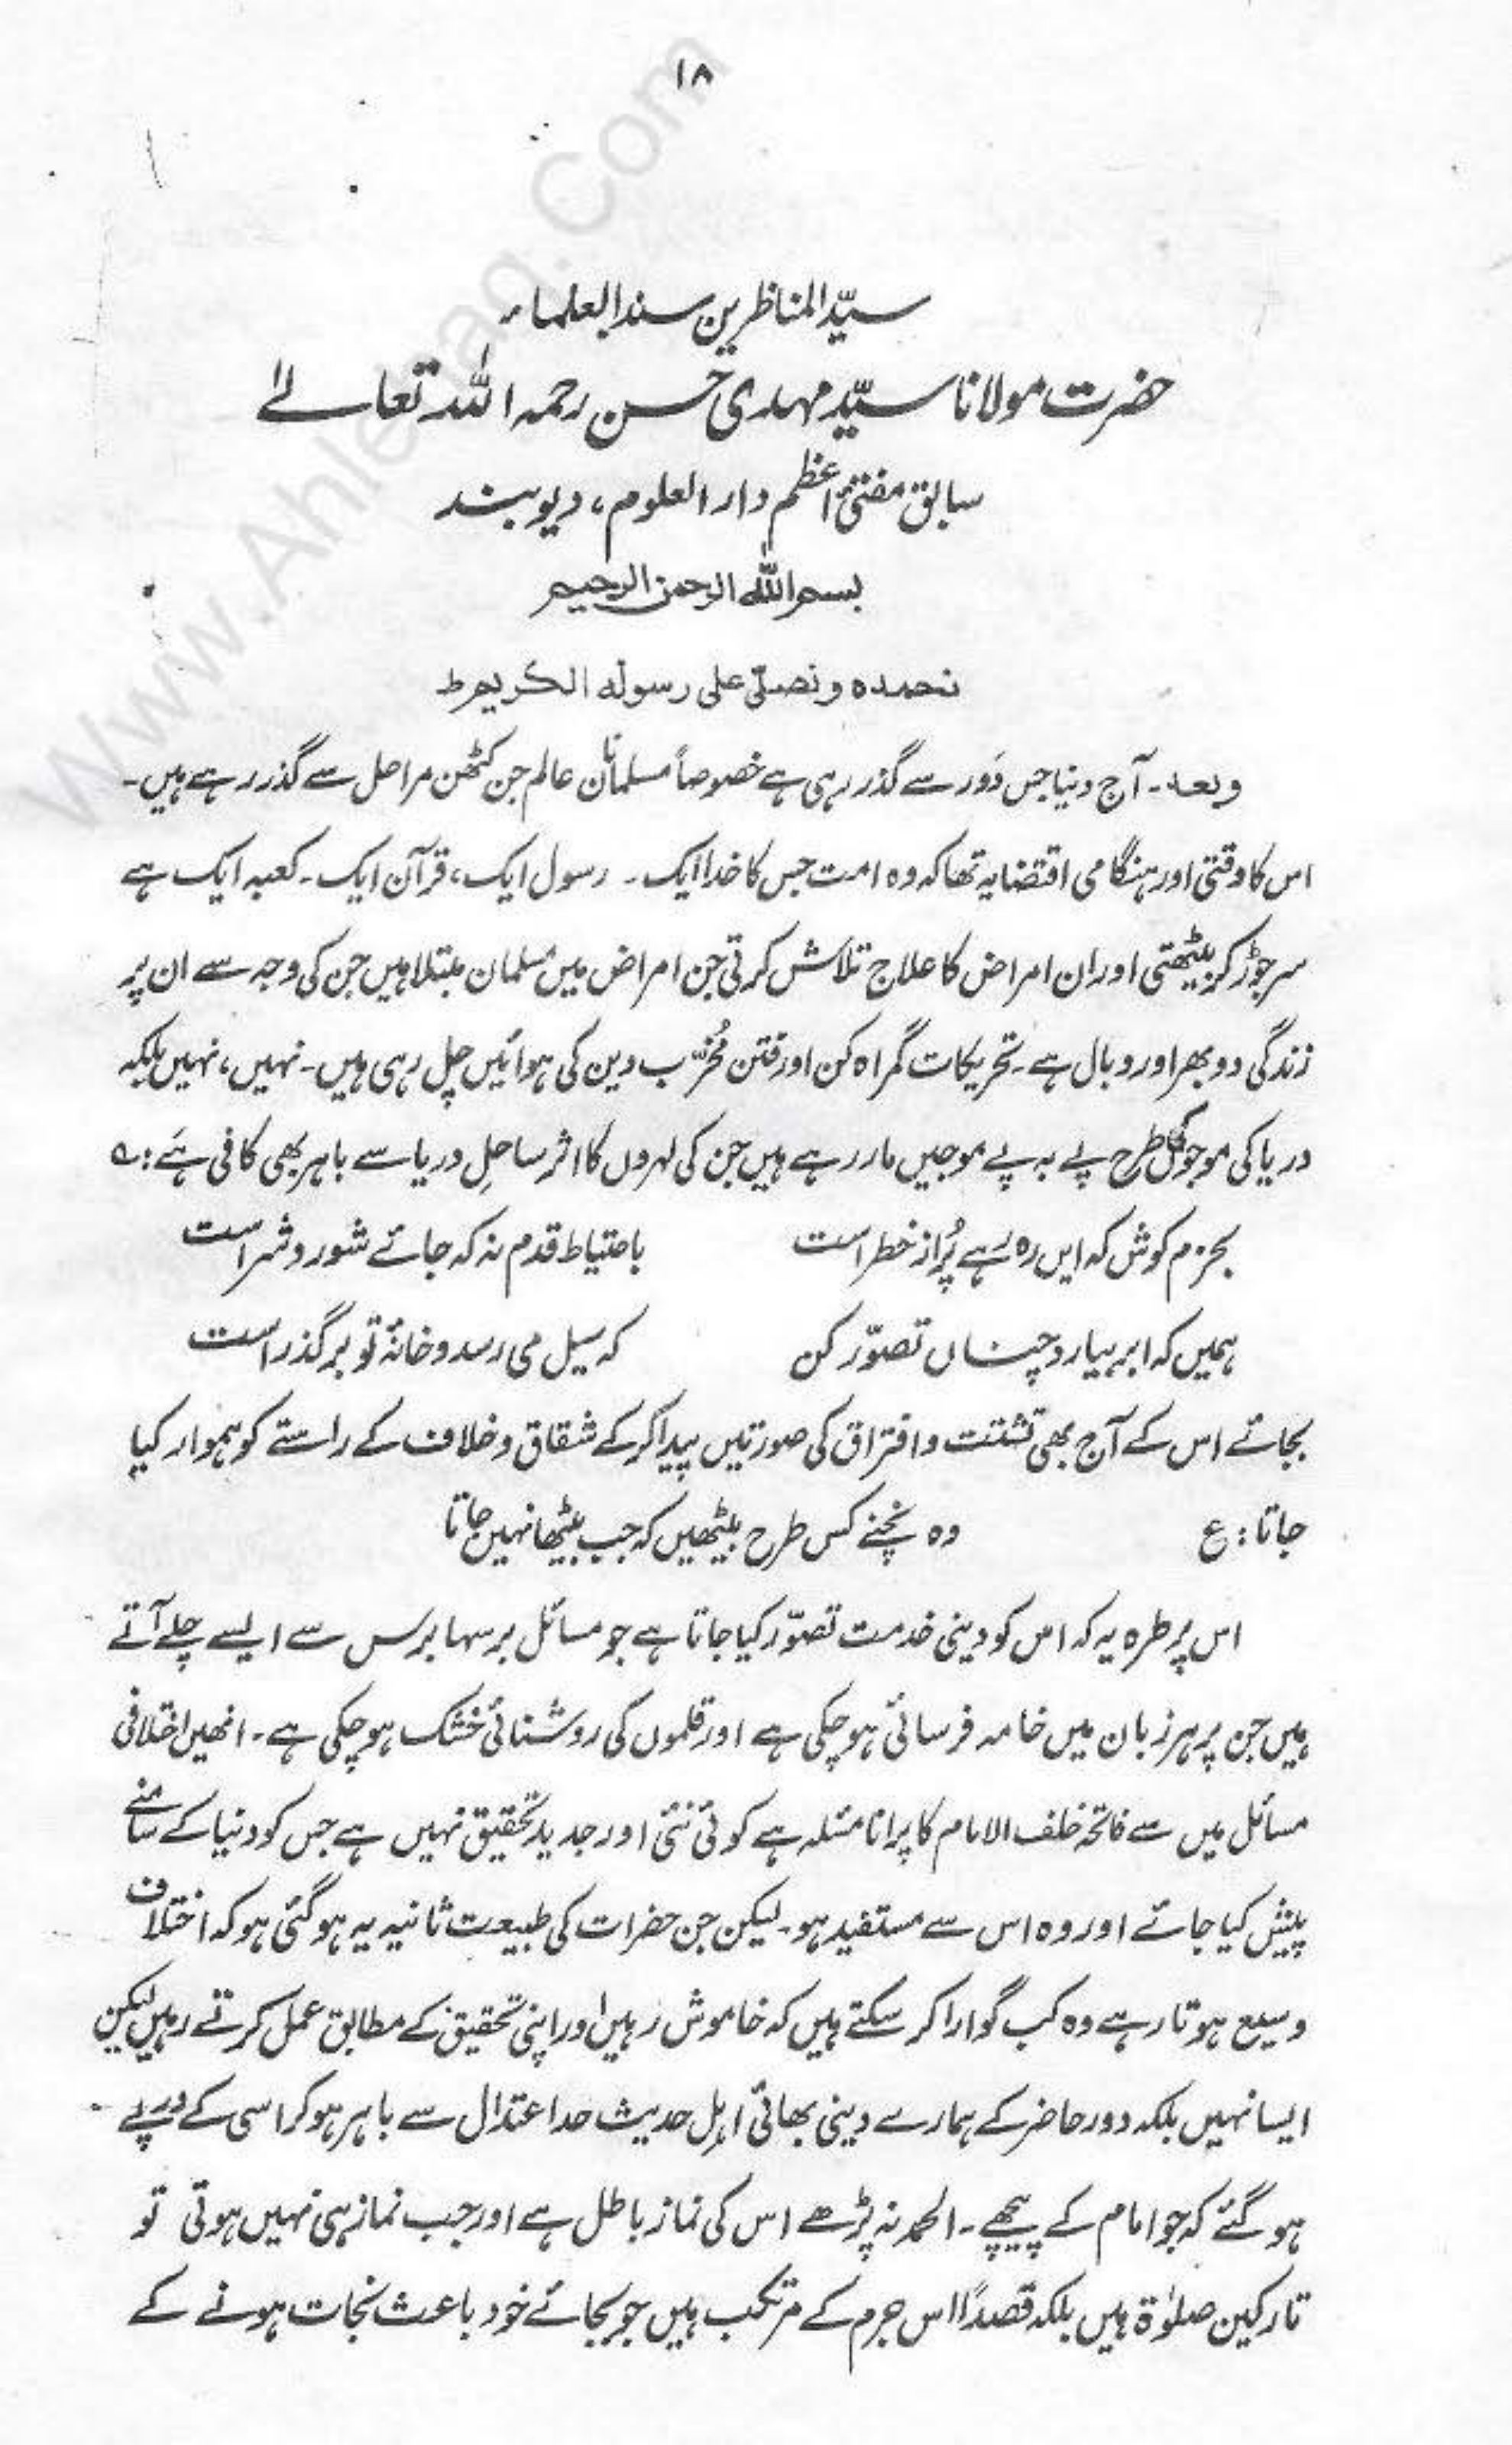 ۱۸
سیّد المناظرین سند العلماء
حضرت مولانا سیّد مہدی حسن رحمہ اللہ تعالےٰ
سابق مفتئ اعظم دار العلوم، دیوبند
بسم اللہ الرحمن الرحیم
نحمدہ و نصلّی علی رسولہ الکریم ط
وبعد۔ آج دنیا جس دَور سے گذر رہی ہے خصوصاً مسلمانان عالم جن کٹھن مراحل سے گذر رہے ہیں۔
اس کا وقتی اور ہنگامی اقتضا یہ تھا کہ وہ امت جس کا خدا ایک۔ رسول ایک، قرآن ایک۔ کعبہ ایک ہے
سر جوڑ کر بیٹھتی اور ان امراض کا علاج تلاش کرتی جن امراض میں مسلمان مبتلا ہیں جن کی وجہ سے ان پر
زندگی دوبھر اور وبال ہے۔ تحریکات گمراہ کن اور فتن مُخرّب دین کی ہوائیں چل رہی ہیں۔ نہیں، نہیں بلکہ
دریا کی موجوں کی طرح پے بہ پے موجیں مار رہے ہیں جن کی لہروں کا اثر ساحلِ دریا سے باہر بھی کافی ہے: ؎
بحزم کوش کہ ایں رہ رہے پُر از خطر است باحتیاط قدم نہ کہ جائے شور و شر است
ہمیں کہ ابر ببارد چناں تصوّر کن کہ سیل می رسد و خانۂ تو بر گذر است
بجائے اس کے آج بھی تشتت و افتراق کی صورتیں پیدا کر کے شقاق و خلاف کے راستے کو ہموار کیا
جاتا: ع وہ نچنے کس طرح بیٹھیں کہ جب بیٹھا نہیں جاتا
اس پر طرہ یہ کہ اس کو دینی خدمت تصوّر کیا جاتا ہے جو مسائل برسہا برس سے ایسے چلے آتے
ہیں جن پر ہر زبان میں خامہ فرسائی ہو چکی ہے اور قلموں کی روشنائی خشک ہو چکی ہے۔ انھیں اختلافی
مسائل میں سے فاتحہ خلف الامام کا پرانا مسئلہ ہے کوئی نئی اور جدید تحقیق نہیں ہے جس کو دنیا کے سامنے
پیش کیا جائے اور وہ اس سے مستفید ہو۔ لیکن جن حضرات کی طبیعت ثانیہ یہ ہو گئی ہو کہ اختلاف
وسیع ہوتا رہے وہ کب گوارا کر سکتے ہیں کہ خاموش رہیں اور اپنی تحقیق کے مطابق عمل کرتے رہیں لیکن
ایسا نہیں بلکہ دور حاضر کے ہمارے دینی بھائی اہل حدیث حد اعتدال سے باہر ہو کر اسی کے درپے
ہو گئے کہ جو امام کے پیچھے۔ الحمد نہ پڑھے اس کی نماز باطل ہے اور جب نماز ہی نہیں ہوتی تو
تارکین صلوٰۃ ہیں بلکہ قصداً اس جرم کے مرتکب ہیں جو بجائے خود باعث نجات ہونے کے
www.Ahlehaq.Com